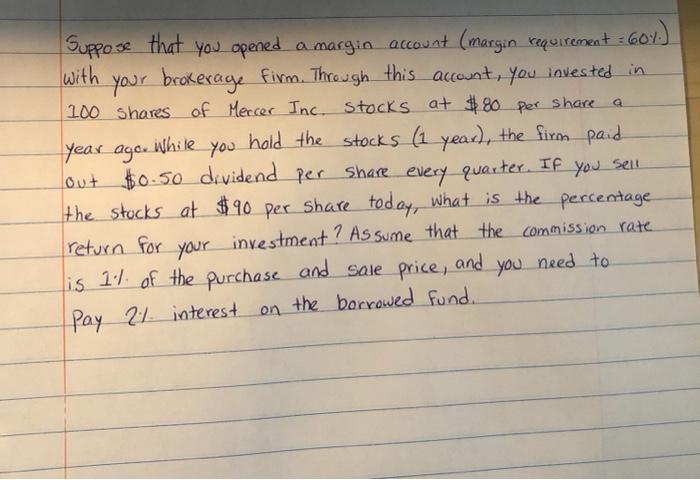 Suppose that you opened a margin account (margin requirement = 60%)
with your brokerage firm. Through this account, you invested in
100 shares of Mercer Inc. stocks at $80 per share a
year ago. While you hold the stocks (1 year), the firm paid
out $0.50 dividend per share every quarter. If you sell
the stocks at $90 per share today, what is the percentage
return for your investment? Assume that the commission rate
is 1% of the purchase and sale price, and you need to
Pay 2% interest on the borrowed fund.